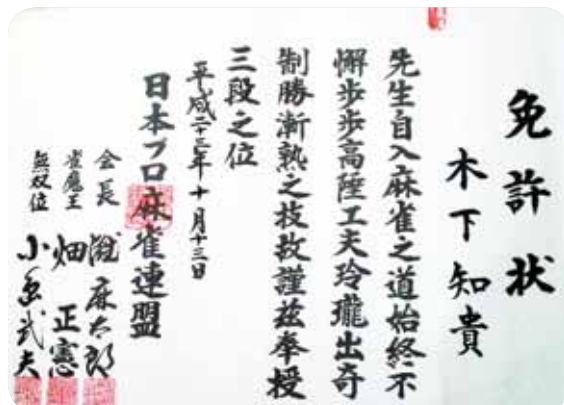 免許状
木下知貴
先生自入麻雀之道始終不
懈歩歩高陞工夫玲瓏出奇
制勝漸熟之技故謹茲奉授
三段之位
平成二十三年十月十三日
日本プロ麻雀連盟
会長 灘 麻太郎
雀魔王 畑 正憲
無双位 小島武夫